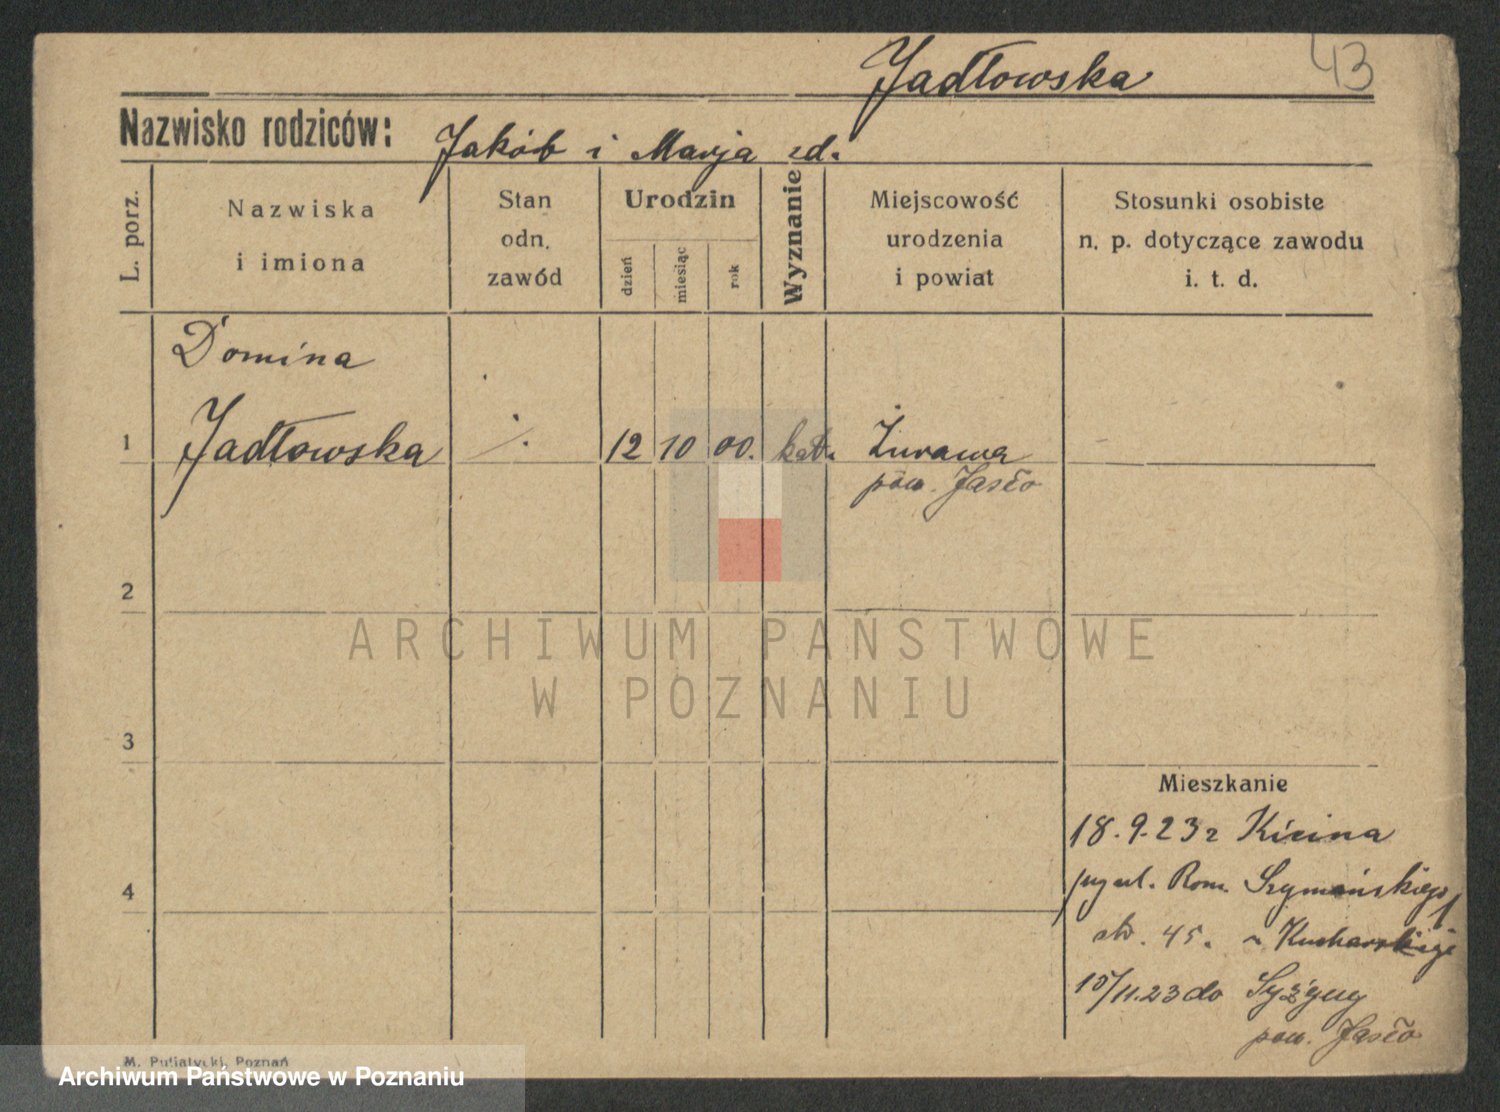 Jadłowska 43
Nazwisko rodziców: Jakób i Marja zd.
L. porz.
Nazwiska
i imiona
Stan
odn.
zawód
Urodzin
dzień
miesiąc
rok
Wyznanie
Miejscowość
urodzenia
i powiat
Stosunki osobiste
n. p. dotyczące zawodu
i. t. d.
Domina
1 Jadłowska 12 10 00. kat. Żurawa
pow. Jasło
2
ARCHIWUM PAŃSTWOWE
W POZNANIU
3
Mieszkanie
18.9.23 z Kicina
4 Rom. Szymańskiego
45. Kucharskiej
15/11.23 do
pow. Jasło
M. Putiatycki, Poznań
Archiwum Państwowe w Poznaniu